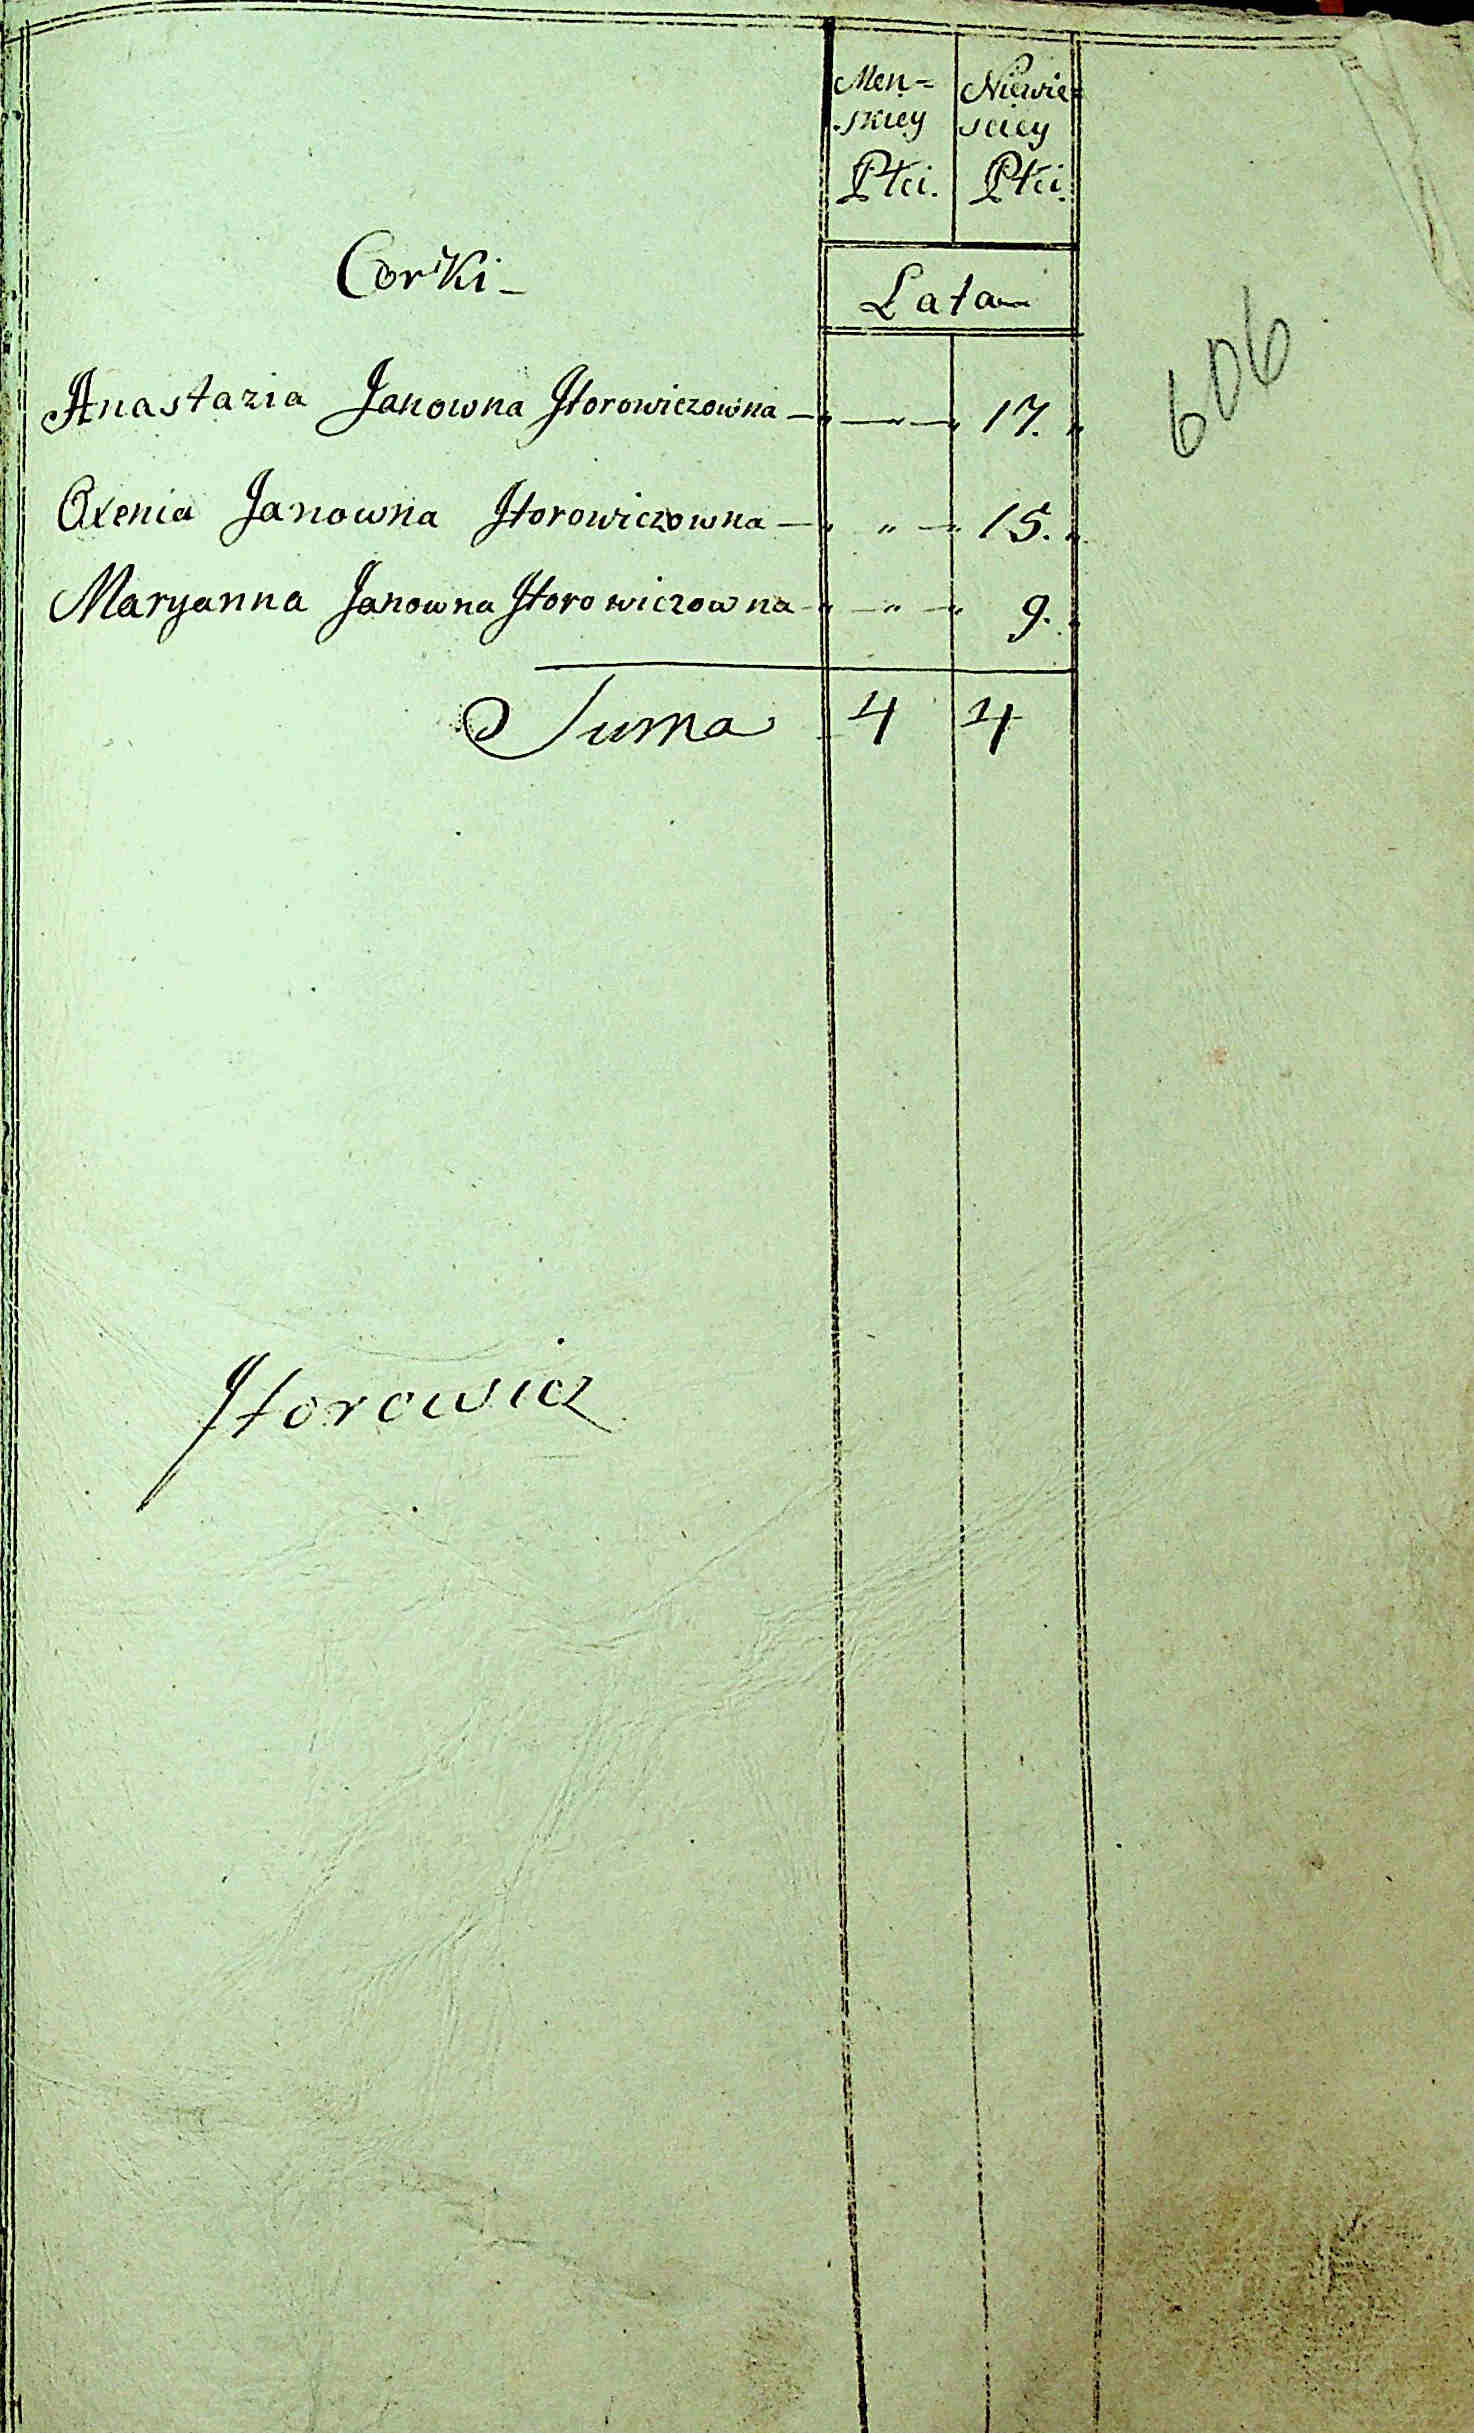 Men=
skiey
Płci.
Niewie=
sciey
Płci.
Corki -
Lata
606
Anastazia Janowna Itorowiczowna - 17.
Oxenia Janowna Itorowiczowna - „ - 15.
Maryanna Janowna Itorowiczowna - „ - 9.
Suma 4 4
Itorowicz